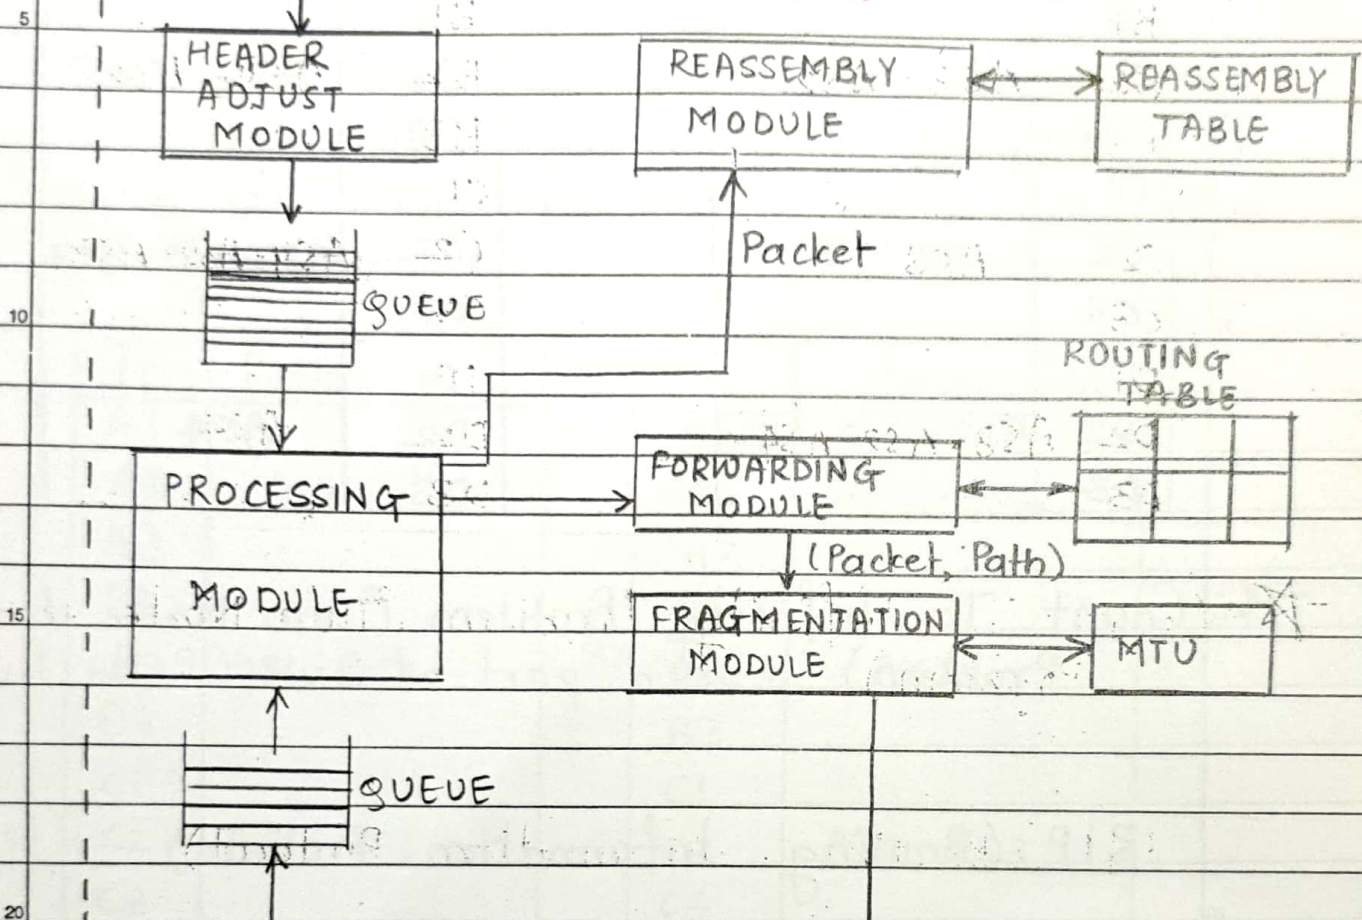 5
HEADER
ADJUST
MODULE
REASSEMBLY
MODULE
REASSEMBLY
TABLE
Packet
QUEUE
10
ROUTING
TABLE
PROCESSING
MODULE
FORWARDING
MODULE
(Packet, Path)
15
FRAGMENTATION
MODULE
MTU
QUEUE
20